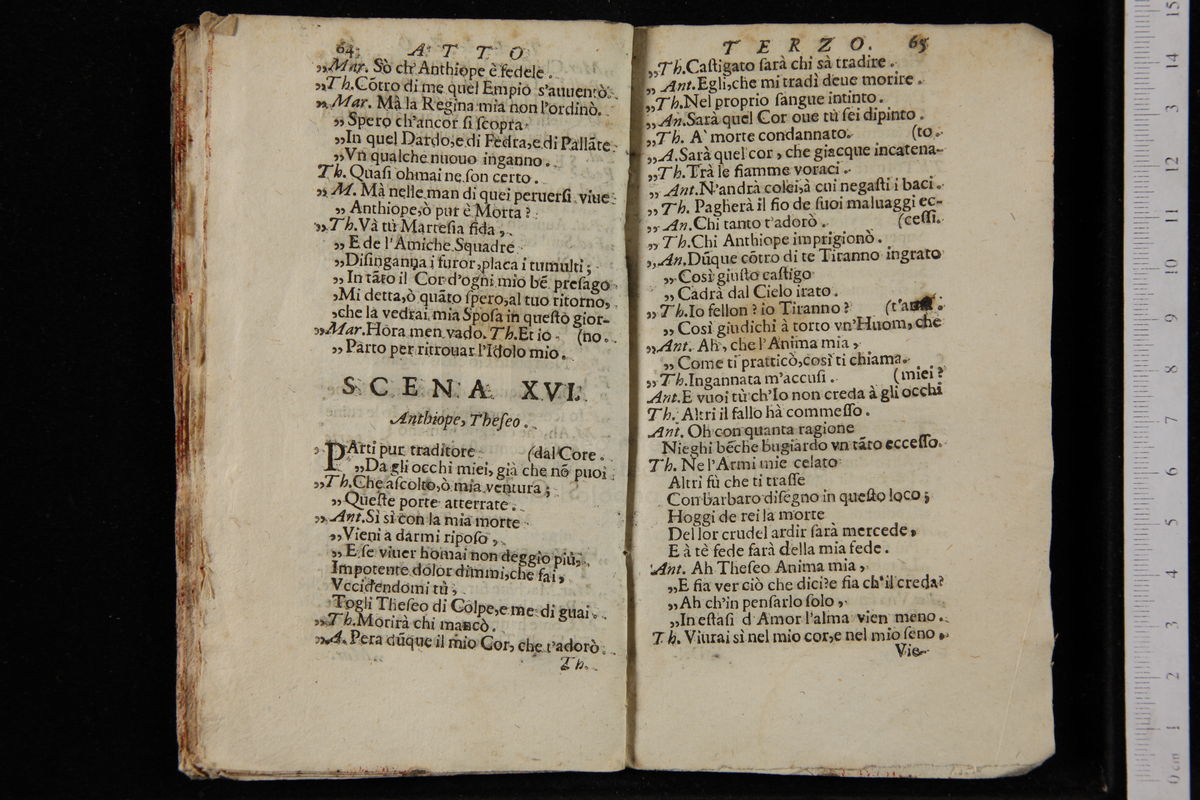 64 A T T O
„Mar. Sò ch'Anthiope è fedele.
„Th. Cõtro di me quel Empio s'auuentò.
„Mar. Mà la Regina mia non l'ordinò.
„Spero ch'ancor si scopra
„In quel Dardo, e di Fedra, e di Pallãte
„Vn qualche nuouo inganno.
Th. Quasi ohmai ne son certo.
„M. Mà nelle man di quei peruersi viue
„Anthiope, ò pur è Morta?
„Th. Và tù Martesia fida,
„E de l'Amiche Squadre
„Disinganna i furor, placa i tumulti;
„In tãto il Cor d'ogni mio bẽ presago
„Mi detta, ò quãto spero, al tuo ritorno,
„che la vedrai mia Sposa in questo gior-
„Mar. Hora men vado. Th. Et io (no.
„Parto per ritrouar l'Idolo mio.
SCENA XVI.
Anthiope, Theseo.
„PArti pur traditore (dal Core.
„Da gli occhi miei, già che nõ puoi
„Th. Che ascolto, ò mia ventura;
„Queste porte atterrate.
„Ant. Sì sì con la mia morte
„Vieni a darmi riposo,
„E se viuer homai non deggio più,
Impotente dolor dimmi, che fai,
Vccidendomi tù;
Togli Theseo di Colpe, e me di guai.
„Th. Morirà chi mancò.
„A. Pera dũque il mio Cor, che t'adorò
Th.
T E R Z O. 65
„Th. Castigato sarà chi sà tradire.
„Ant. Egli, che mi tradì deue morire.
„Th. Nel proprio sangue intinto.
„An. Sarà quel Cor oue tù sei dipinto.
„Th. A' morte condannato. (to.
„A. Sarà quel cor, che giacque incatena-
„Th. Trà le fiamme voraci.
„Ant. N'andrà colei, à cui negasti i baci.
„Th. Pagherà il fio de suoi maluaggi ec-
„An. Chi tanto t'adorò. (cessi.
„Th. Chi Anthiope imprigionò.
„An. Dũque cõtro di te Tiranno ingrato
„Così giusto castigo
„Cadrà dal Cielo irato.
„Th. Io fellon? io Tiranno? (t'
„Così giudichi à torto vn'Huom, che
„Ant. Ah, che l'Anima mia,
„Come ti pratticò, così ti chiama.
„Th. Ingannata m'accusi. (miei?
Ant. E vuoi tù ch'Io non creda à gli occhi
Th. Altri il fallo hà commesso.
Ant. Oh con quanta ragione
Nieghi bẽche bugiardo vn tãto eccesso.
Th. Ne l'Armi mie celato
Altri fù che ti trasse
Con barbaro disegno in questo loco;
Hoggi de rei la morte
Del lor crudel ardir sarà mercede,
E à tè fede sarà della mia fede.
Ant. Ah Theseo Anima mia,
„E fia ver ciò che dici? e fia ch'il creda?
„Ah ch'in pensarlo solo,
„In estasi d Amor l'alma vien meno.
Th. Viurai sì nel mio cor, e nel mio seno.
Vie-
0 cm 1 2 3 4 5 6 7 8 9 10 11 12 13 14 15